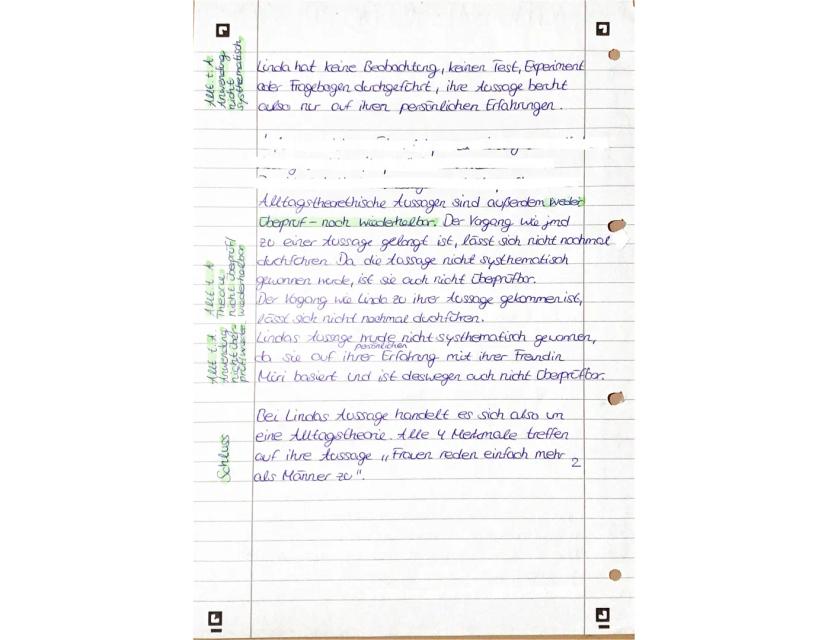 Linda hat keine Beobachtung, keinen Test, Experiment
oder Fragebogen durchgeführt, ihre Aussage beruht
also nur auf ihren persönlichen Erfahrungen.
Alltagstheorethische Aussagen sind außerdem weder
Überprüf- noch wiederholbar. Der Vogang wie jmd
zu einer Aussage gelangt ist, lässt sich nicht nochmal
duchführen. Da die Aussage nicht systhematisch
gewonnen wurde, ist sie auch nicht Überprüfbar.
Der Vogang wie Linda zu ihrer Aussage gekommen ist,
lässt sich nicht nochmal duchführen.
Lindas Aussage wurde nicht systhematisch gewonnen,
persönlichen
da sie auf ihrer Erfahrung mit ihrer Freundin
Miri basiert und ist deswegen auch nicht Überprüfbar.
Bei Lindas Aussage handelt es sich also um
eine Alltagstheorie. Alle 4 Merkmale treffen
auf ihre Aussage „Frauen reden einfach mehr
2
als Männer zu".
Allt. t. A
Anwendung
nicht
systhematisch
Allt. t. A
Theorie
nicht überprüf/
wiederholbar
Allt. t. A
Anwendung
nicht über-
prüf/wieder
Schluss